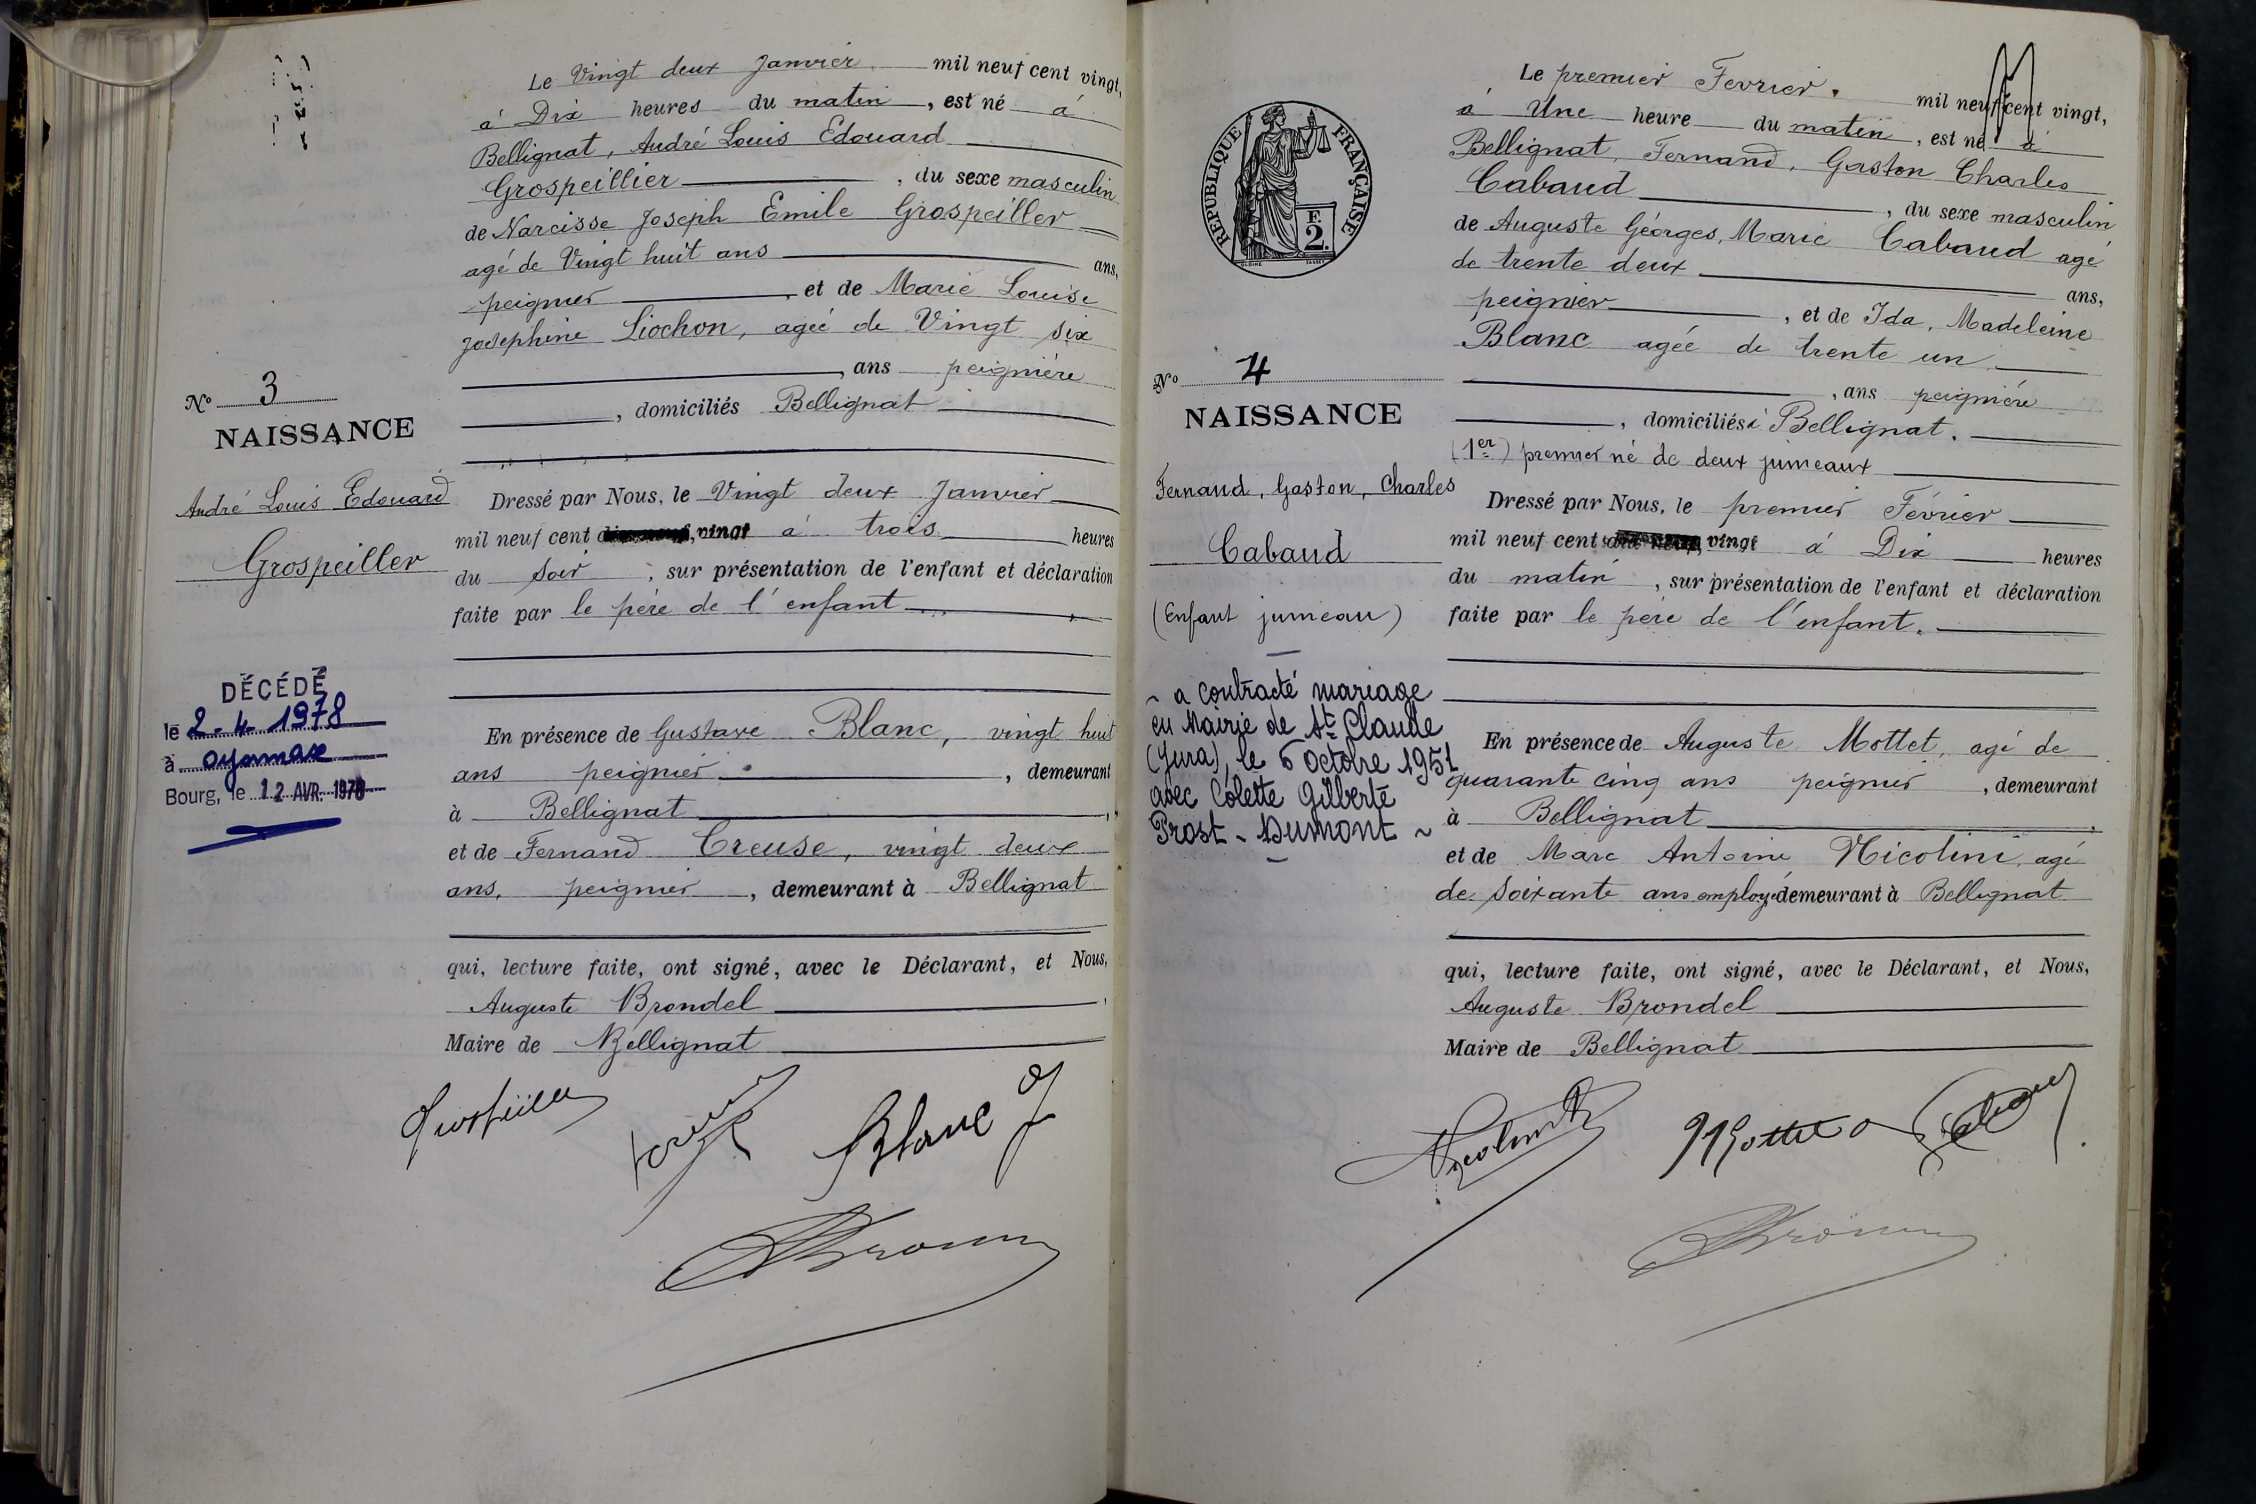 Le Vingt deux Janvier mil neuf cent vingt,
à Dix heures du matin, est né à
Bellignat, André Louis Edouard
Grospeillier, du sexe masculin
de Narcisse Joseph Emile Grospeiller
agé de Vingt huit ans ans,
peignier, et de Marie Louise
Josephine Liochon, agée de Vingt six
, ans peignière
, domiciliés Bellignat
Nº 3
NAISSANCE
André Louis Edouard
Grospeiller
Dressé par Nous, le Vingt deux Janvier
mil neuf cent vingt à trois heures
du soir, sur présentation de l'enfant et déclaration
faite par le père de l'enfant
DÉCÉDÉ
le 2-4-1978
à oyonnax
Bourg, le 12 AVR. 1978
En présence de Gustave Blanc, vingt huit
ans peignier, demeurant
à Bellignat,
et de Fernand Creuse, vingt deux
ans, peignier, demeurant à Bellignat
qui, lecture faite, ont signé, avec le Déclarant, et Nous,
Auguste Brondel
Maire de Bellignat
Blanc g
RÉPUBLIQUE FRANÇAISE
F.
2.
Le premier Fevrier. mil neuf cent vingt,
à Une heure du matin, est né à
Bellignat, Fernand, Gaston Charles
Cabaud, du sexe masculin
de Auguste Géorges, Marie Cabaud agé
de trente deux ans,
peignier, et de Ida, Madeleine
Blanc agée de trente un
, ans peignière
, domiciliés à Bellignat.
(1er) premier né de deux jumeaux
Nº 4
NAISSANCE
Fernand, Gaston, Charles
Cabaud
(Enfant jumeau)
Dressé par Nous, le premier Février
mil neuf cent vingt à Dix heures
du matin, sur présentation de l'enfant et déclaration
faite par le père de l'enfant.
~ a contracté mariage
en Mairie de St Claude
(Jura), le 6 octobre 1951
avec Colette Gilberte
Prost-Dumont ~
En présence de Auguste Mottet, agé de
quarante cinq ans peignier, demeurant
à Bellignat
et de Marc Antoine Nicolini, agé
de soixante ans employé demeurant à Bellignat
qui, lecture faite, ont signé, avec le Déclarant, et Nous,
Auguste Brondel
Maire de Bellignat
Mottet